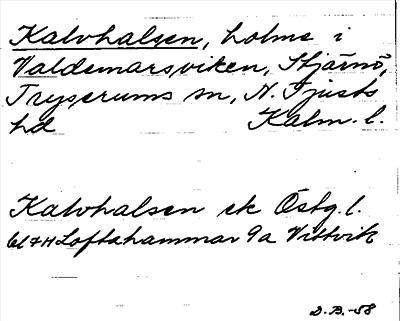 Kalvhalsen, holme i
Valdemarsviken, Stjärnö,
Tryserums sn, N. Tjusts
hd Kalm. l.
Kalvhalsen ek Östg. l.
Loftahammar 9a Vittvik
D.B.-58